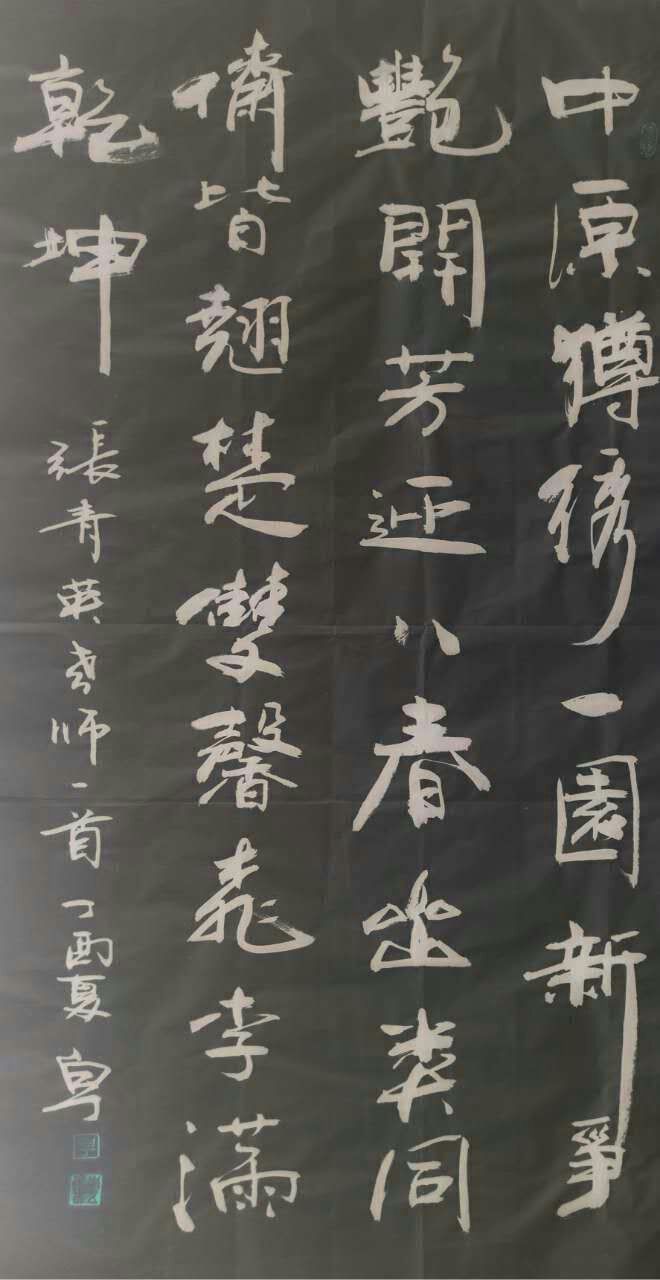 中原獨綉一園新爭
艷開芳迎八春出类同
儕皆翹楚雙馨桃李滿
乾坤
張青英老师一首丁酉夏